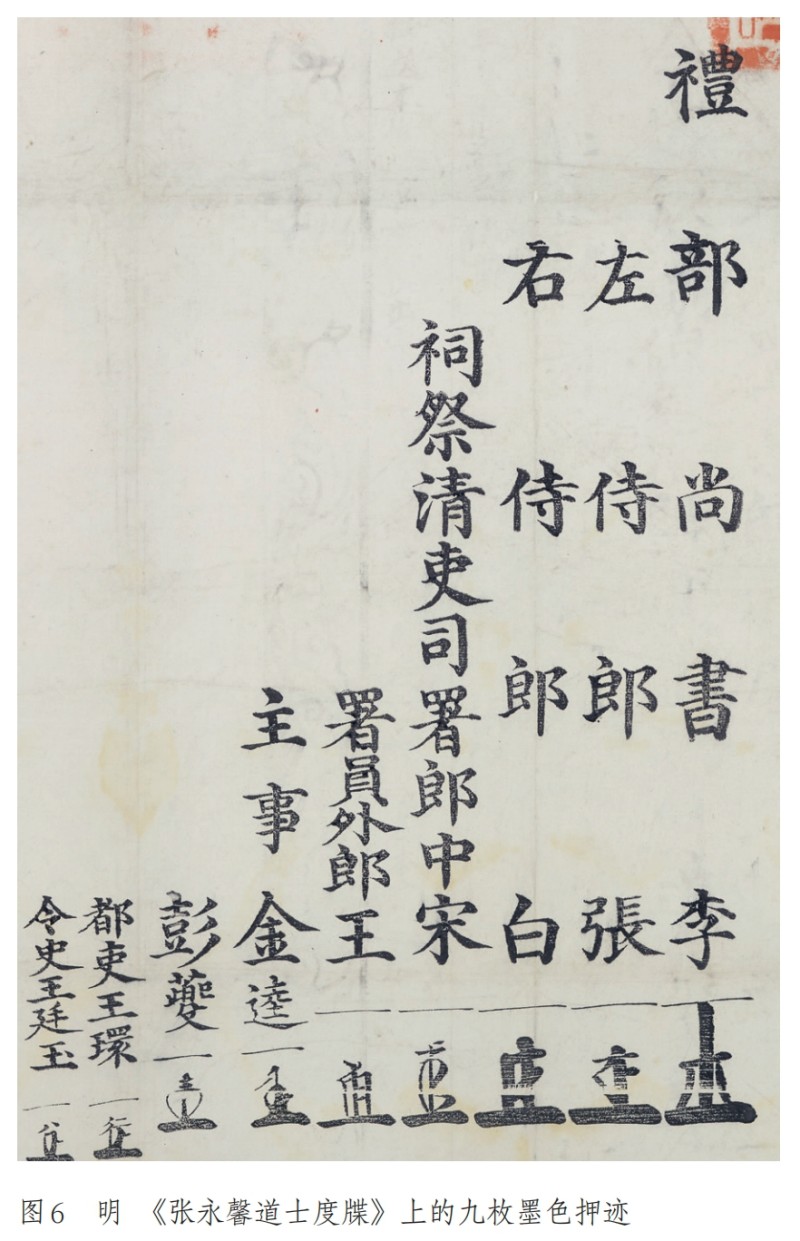 禮部尚書李
左侍郎張
右侍郎白
祠祭清吏司署郎中宋
署員外郎王
主事金逵
彭夔
都吏王環
令史王廷玉
图6 明 《张永馨道士度牒》上的九枚墨色押迹